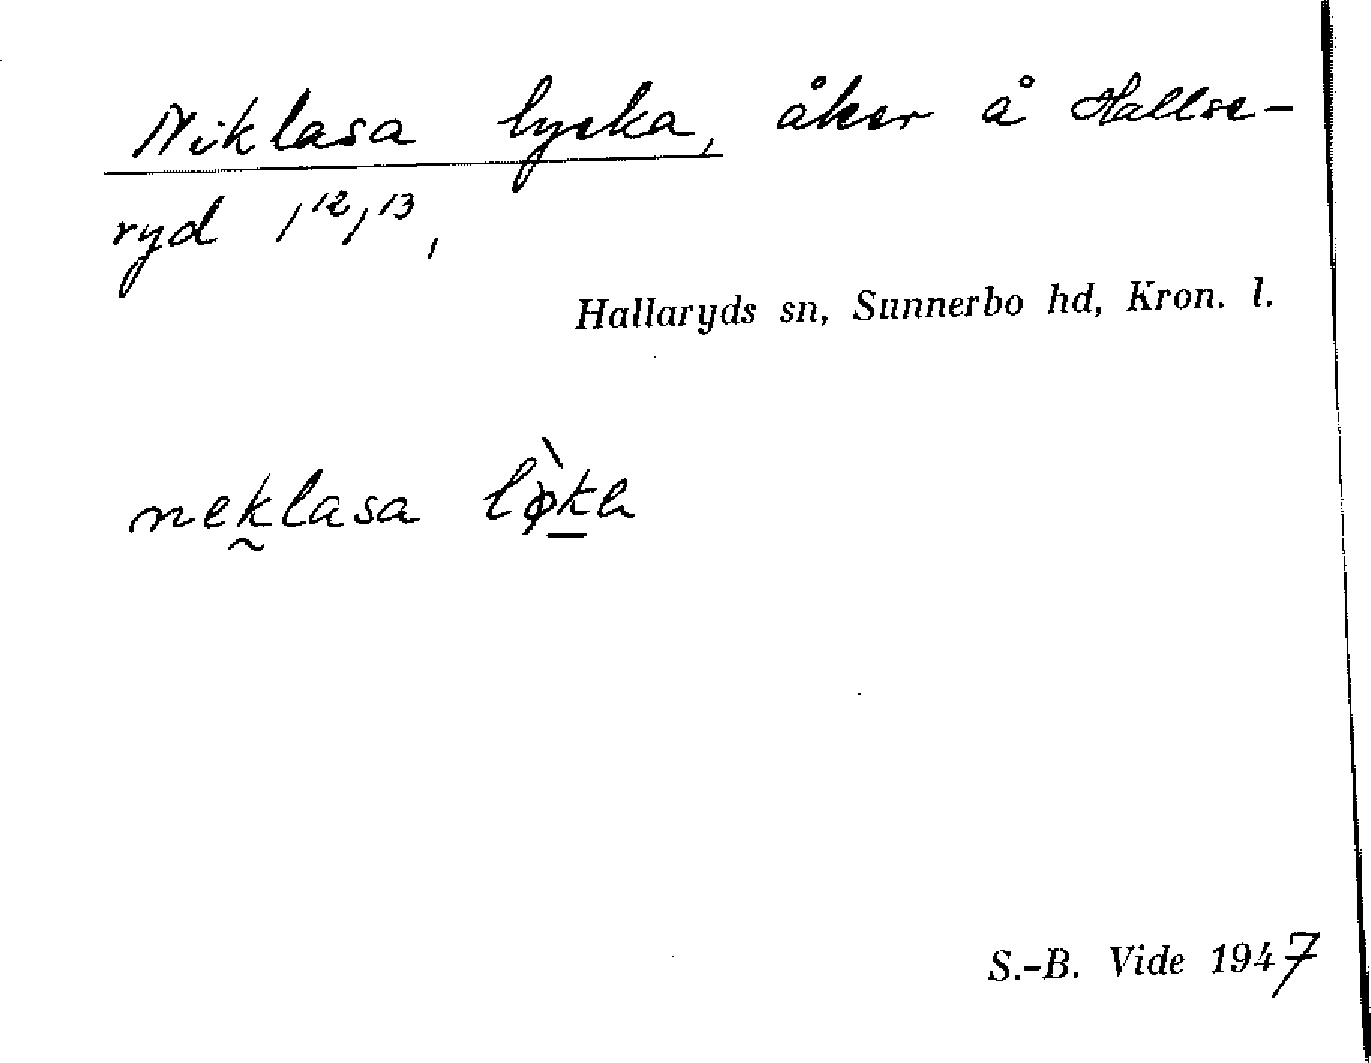 Niklasa lycka, åker å Hallse-
ryd 1¹², 1¹³,
Hallaryds sn, Sunnerbo hd, Kron. l.
neklasa lø̀ka
S.-B. Vide 1947